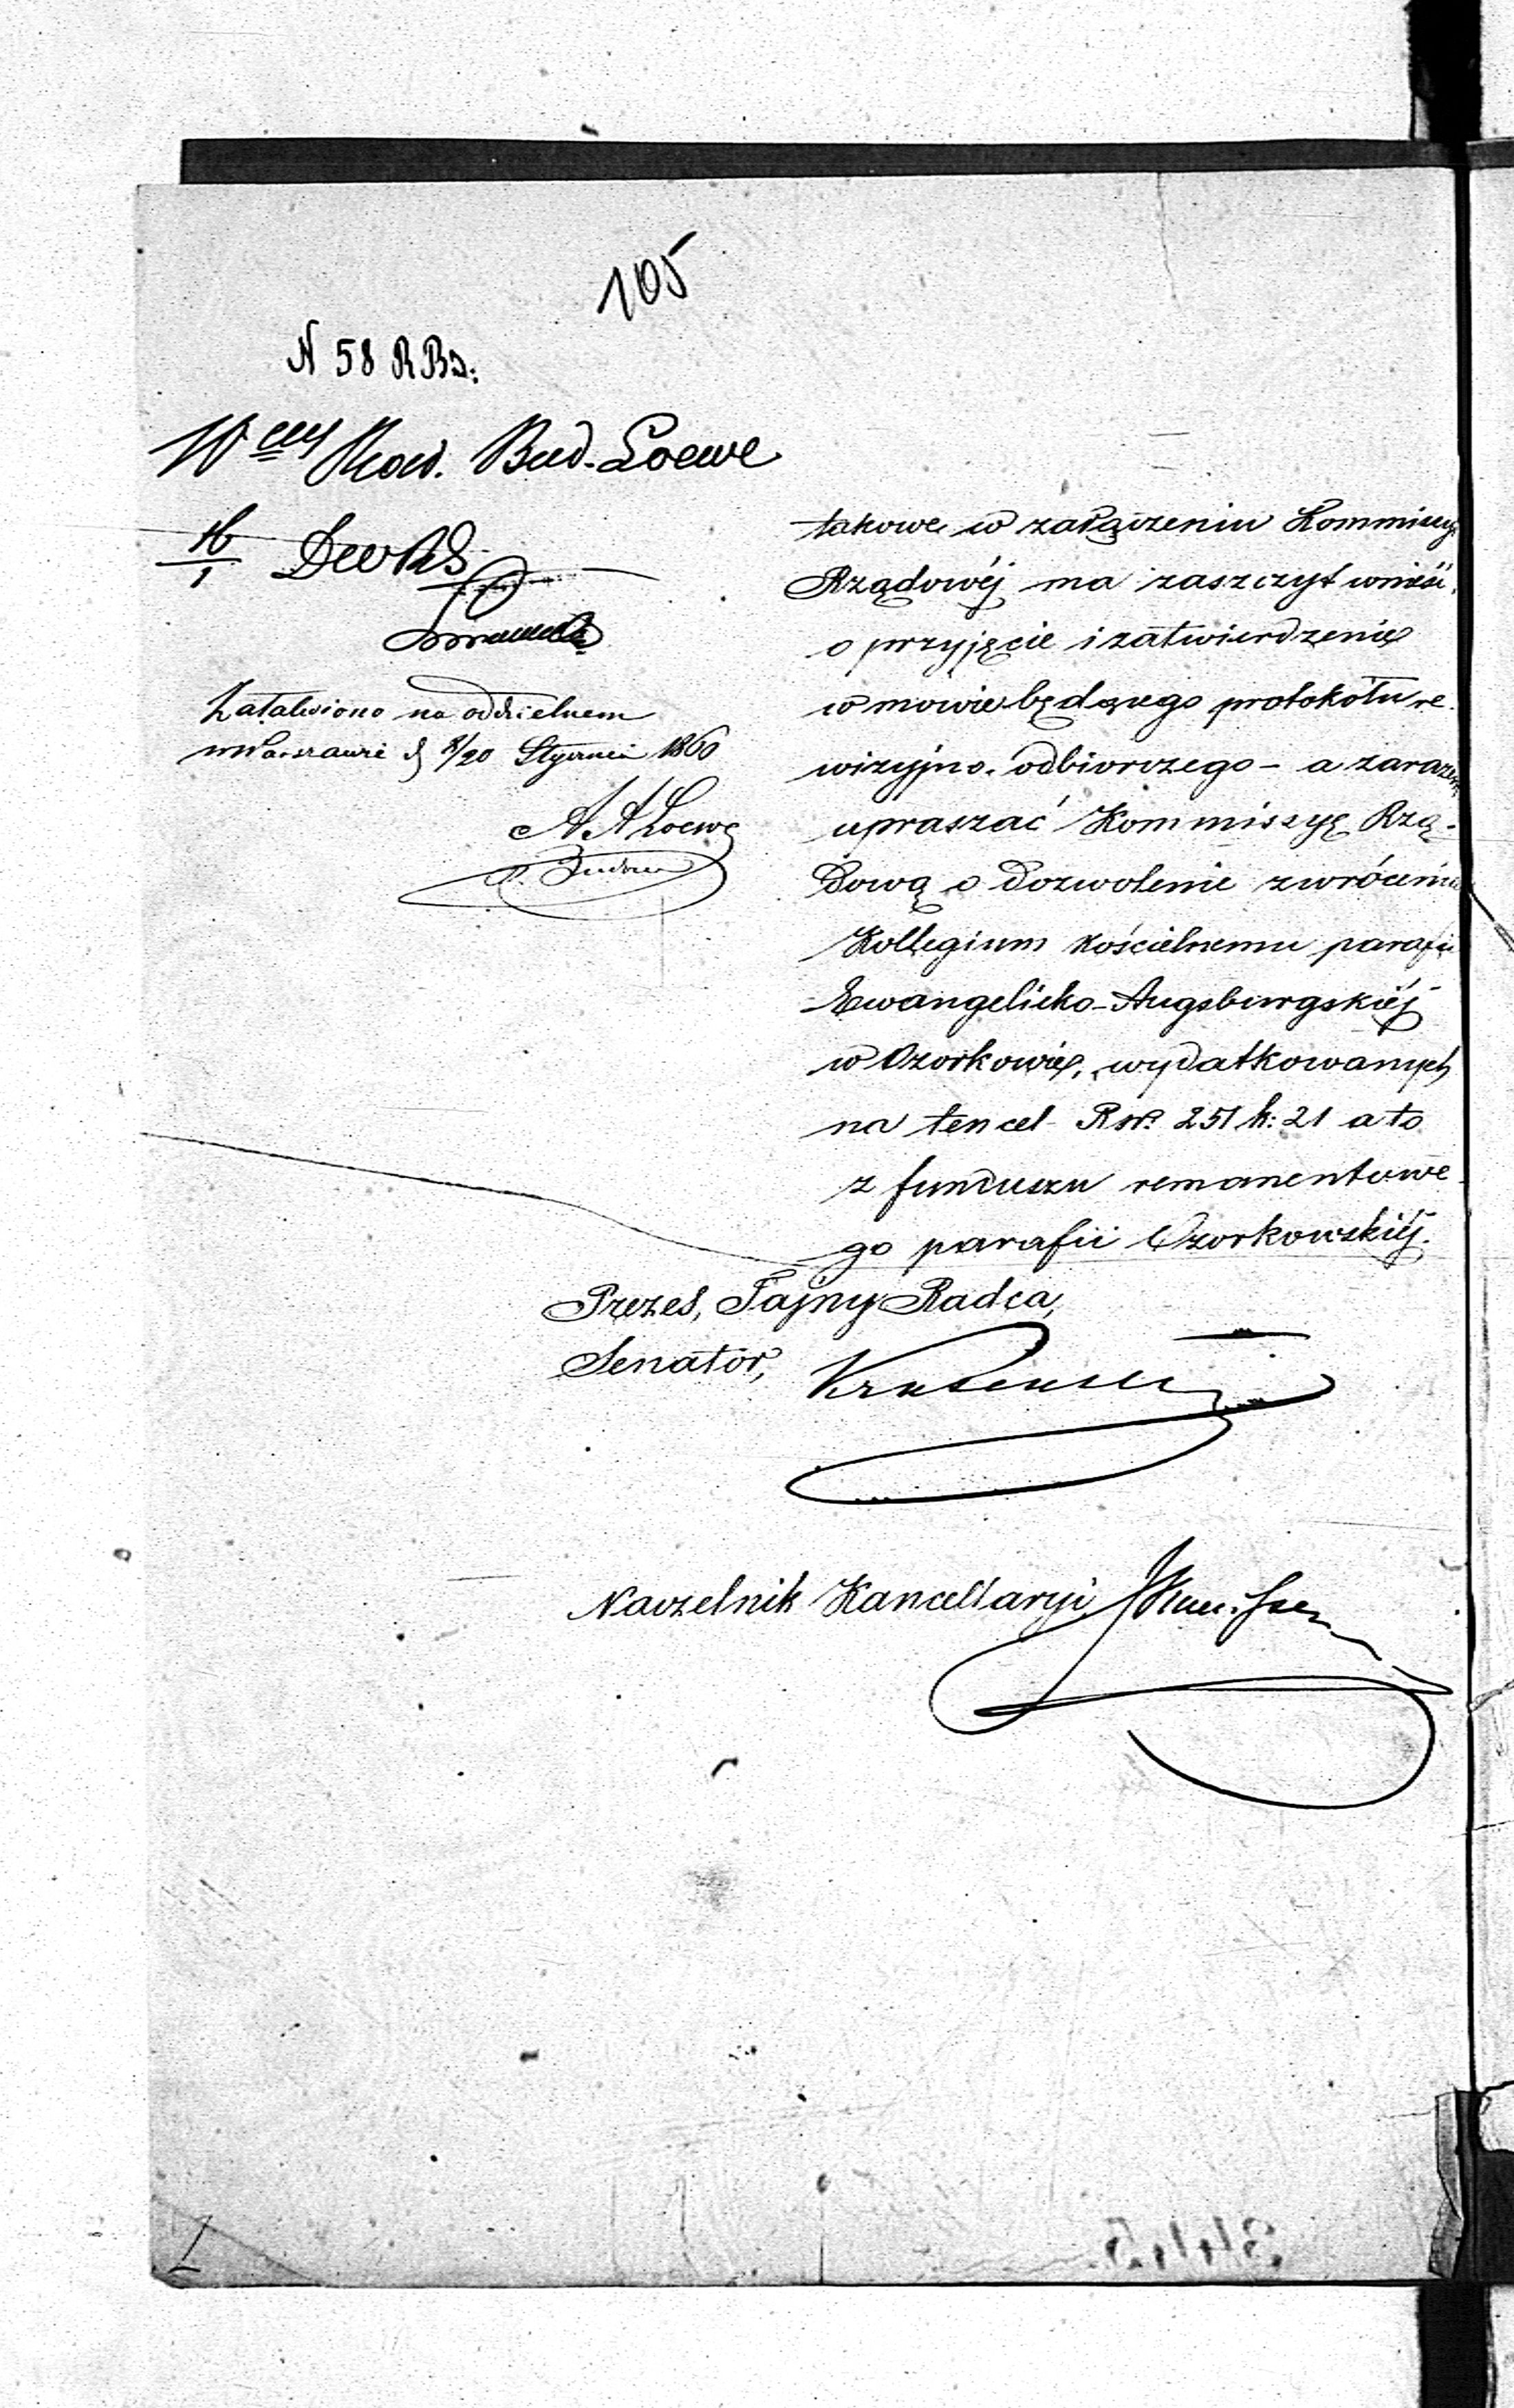 105
N 58 R Bd:
Bud. Loewe
16/1
Załatwiono na oddzielnem
w Warszawie d 8/20 Stycznia 1860
A A Loewe
takowe w załączeniu Kommissyi
Rządowéj ma zaszczyt wnieść
o przyjęcie i zatwierdzenie
w mowie będącego protokółu re-
wizyjno-odbiorczego - a zarazem
upraszać Kommissyę Rzą-
dową o dozwolenie zwrócenia
Kollegium Kościelnemu parafii
Ewangelicko-Augsburgskiéj
w Ozorkowie, wydatkowanych
na ten cel Rsr. 251 k: 21 a to
z funduszu remanentowe-
go parafii Ozorkowskiéj.
Prezes, Tajny Radca,
Senator,
Naczelnik Kancellaryi
1